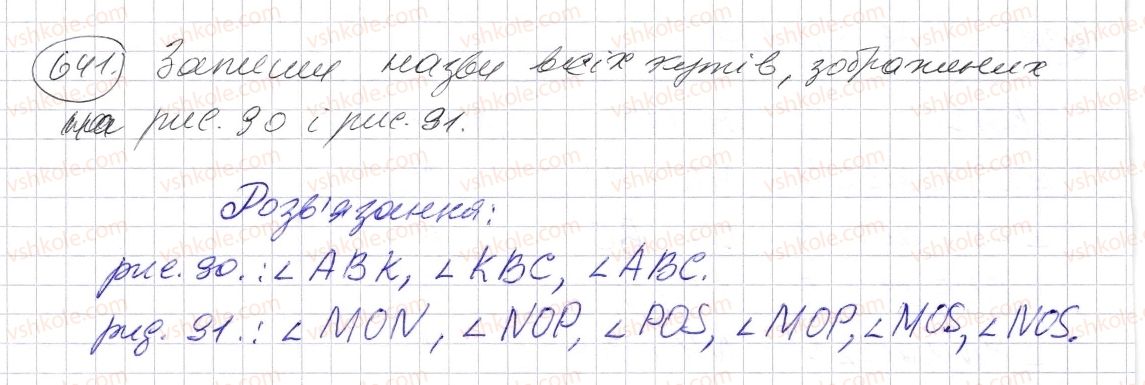 641. Запиши назви всіх кутів, зображених
на рис. 90 і рис. 91.
Розв'язання:
рис. 90.: ∠ABK, ∠KBC, ∠ABC.
рис. 91.: ∠MON, ∠NOP, ∠POS, ∠MOP, ∠MOS, ∠NOS.